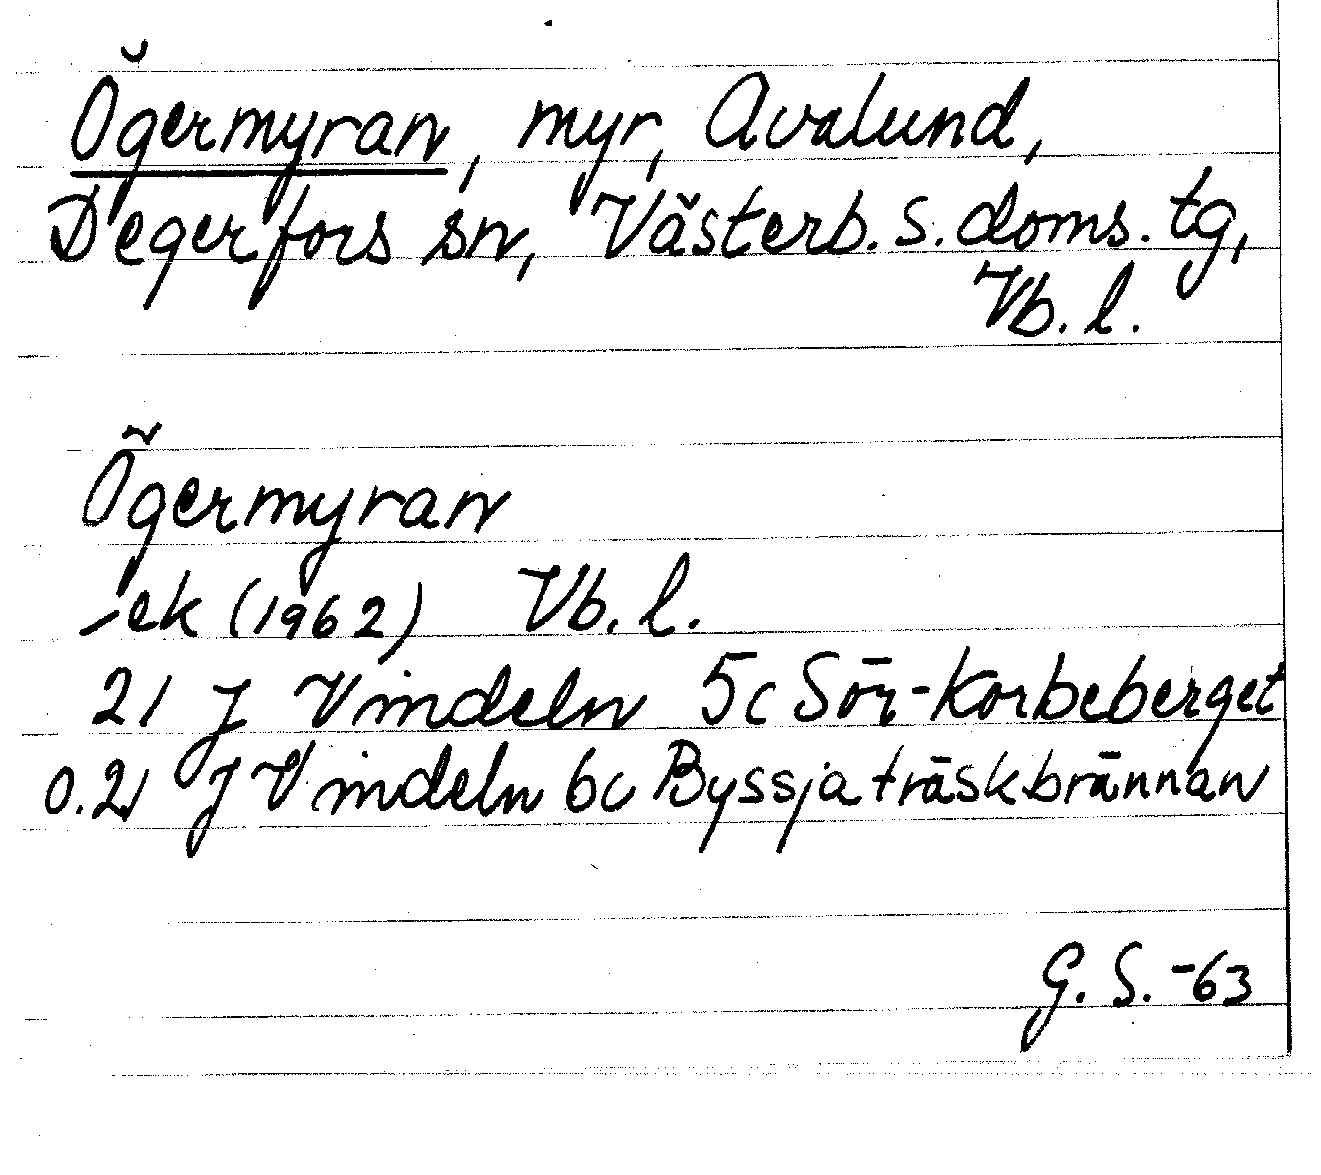 Ögermyran, myr, Avalund,
Degerfors sn, Västerb. s. doms. tg,
Vb. l.
Ögermyran
-ek (1962) Vb. l.
21 J Vindeln 5c Sör-Korbeberget
0.21 J Vindeln 6c Byssjaträskbrännan
G. S. -63